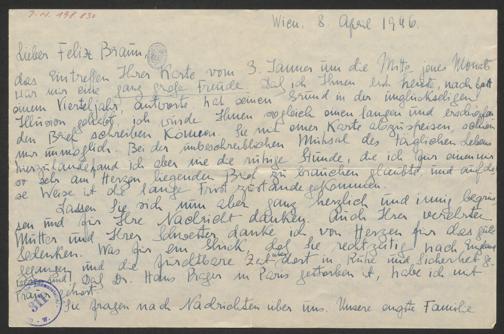 J.N. 198.830
Wien. 8 April 1946.
Lieber Felix Braun,
das Eintreffen Ihrer Karte vom 3. Jänner um die Mitte jenes Monats
war mir eine ganz große Freude. Daß ich Ihnen erst heute, nach bald
einem Vierteljahr, antworte hat seinen Grund in der unglückseligen
Illusion gehabt, ich würde Ihnen sogleich einen langen und erschöpfenden
Brief schreiben können. Sie mit einer Karte abzuspeisen, schien
mir unmöglich. Bei der unbeschreiblichen Mühsal des täglichen Lebens
hierzulande fand ich aber nie die ruhige Stunde, die ich für einen mir
so sehr am Herzen liegenden Brief zu brauchen glaubte und auf die-
se Weise ist die lange Frist zustande gekommen.
Lassen Sie sich nun aber ganz herzlich und innig begrüs-
sen und für Ihre Nachricht danken. Auch Ihrer verehrten
Mutter und Ihrer Schwester danke ich von Herzen für das
Gedenken. Was für ein Glück, daß Sie rechtzeitig nach England
gegangen und die furchtbare Zeit dort in Ruhe und Sicherheit
Daß Dr. Hans Prager in Paris gestorben ist, habe ich mit
Trauer gehört.
Sie fragen nach Nachrichten über uns. Unsere engste Familie